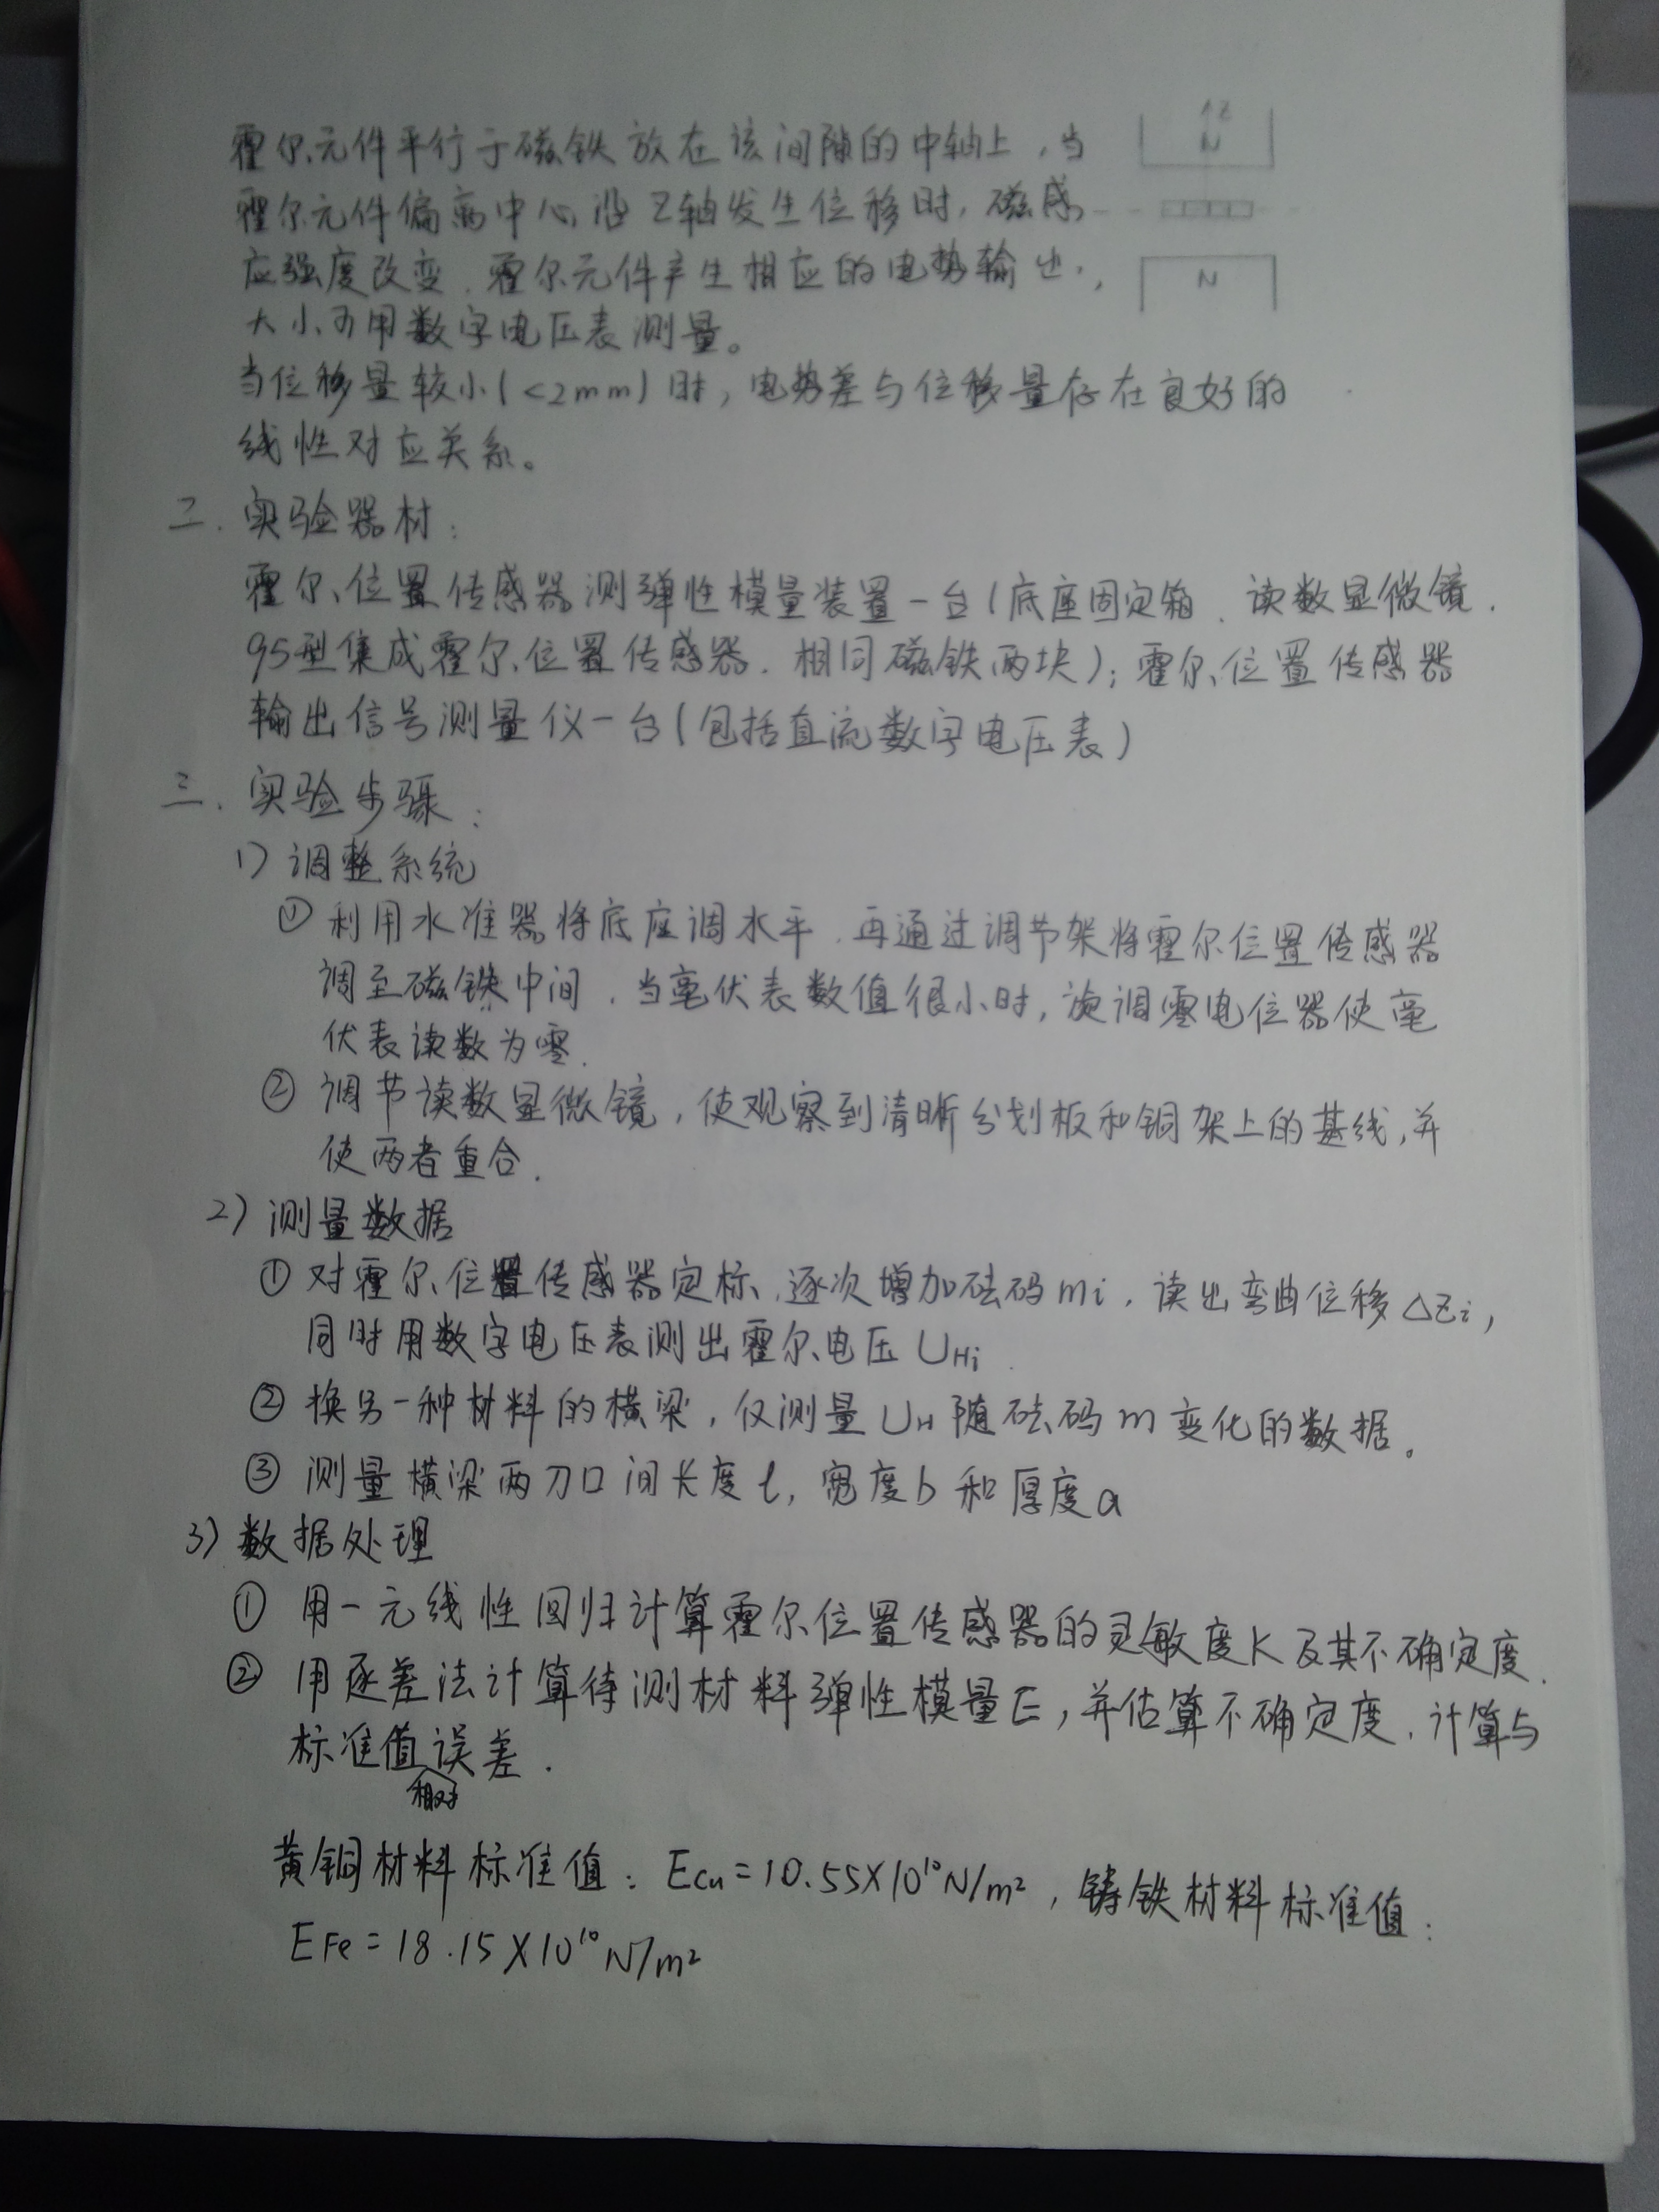 霍尔元件平行于磁铁放在该间隙的中轴上，当
霍尔元件偏离中心沿Z轴发生位移时，磁感
应强度改变，霍尔元件产生相应的电势输出，
大小可用数字电压表测量。
Z
N
N
当位移量较小(<2mm)时，电势差与位移量存在良好的
线性对应关系。
二．实验器材：
霍尔位置传感器测弹性模量装置一台(底座固定箱、读数显微镜、
95型集成霍尔位置传感器、相同磁铁两块)；霍尔位置传感器
输出信号测量仪一台(包括直流数字电压表)
三．实验步骤：
1) 调整系统
① 利用水准器将底座调水平，再通过调节架将霍尔位置传感器
调至磁铁中间，当毫伏表数值很小时，旋调零电位器使毫
伏表读数为零．
② 调节读数显微镜，使观察到清晰分划板和铜架上的基线，并
使两者重合．
2) 测量数据
① 对霍尔位置传感器定标，逐次增加砝码mi，读出弯曲位移△Zi，
同时用数字电压表测出霍尔电压UHi．
② 换另一种材料的横梁，仅测量UH随砝码m变化的数据。
③ 测量横梁两刀口间长度l，宽度b和厚度a
3) 数据处理
① 用一元线性回归计算霍尔位置传感器的灵敏度K及其不确定度．
② 用逐差法计算待测材料弹性模量E，并估算不确定度，计算与
标准值相对误差．
黄铜材料标准值：Ecu=10.55×10¹⁰N/m²，铸铁材料标准值：
EFe=18.15×10¹⁰N/m²